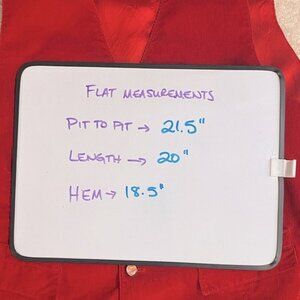 FLAT MEASUREMENTS
PIT TO PIT → 21.5"
LENGTH → 20"
HEM → 18.5"